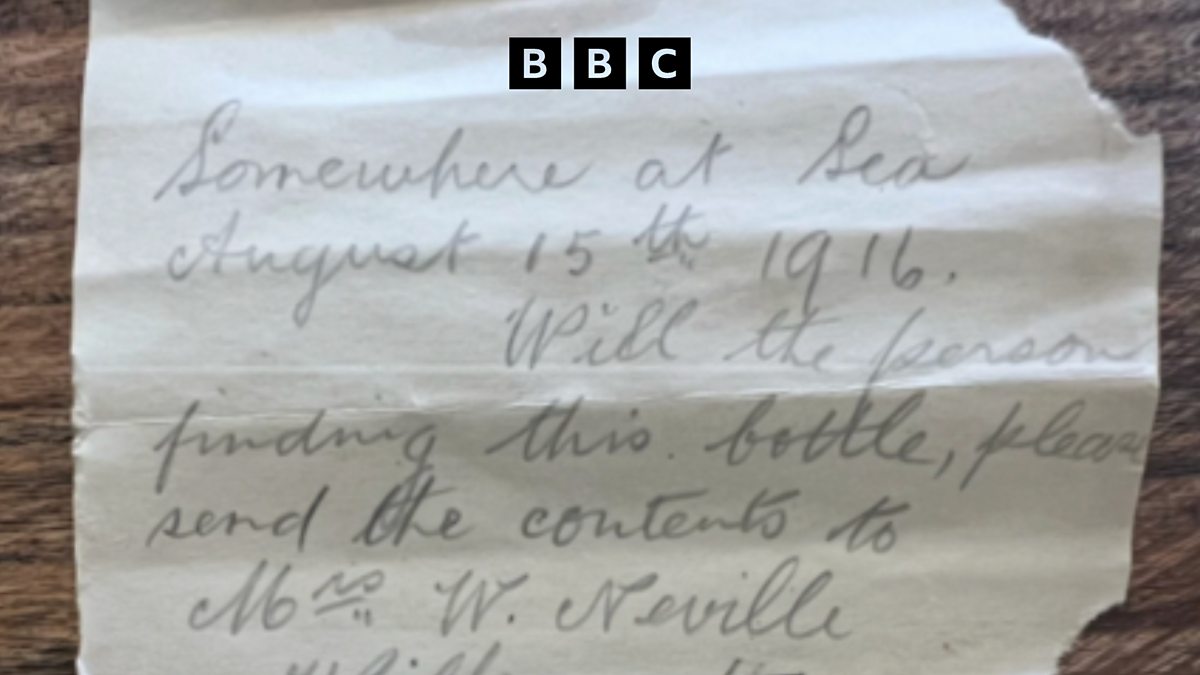 BBC
Somewhere at Sea
August 15th 1916.
Will the person
finding this bottle, please
send the contents to
Mrs W. Neville